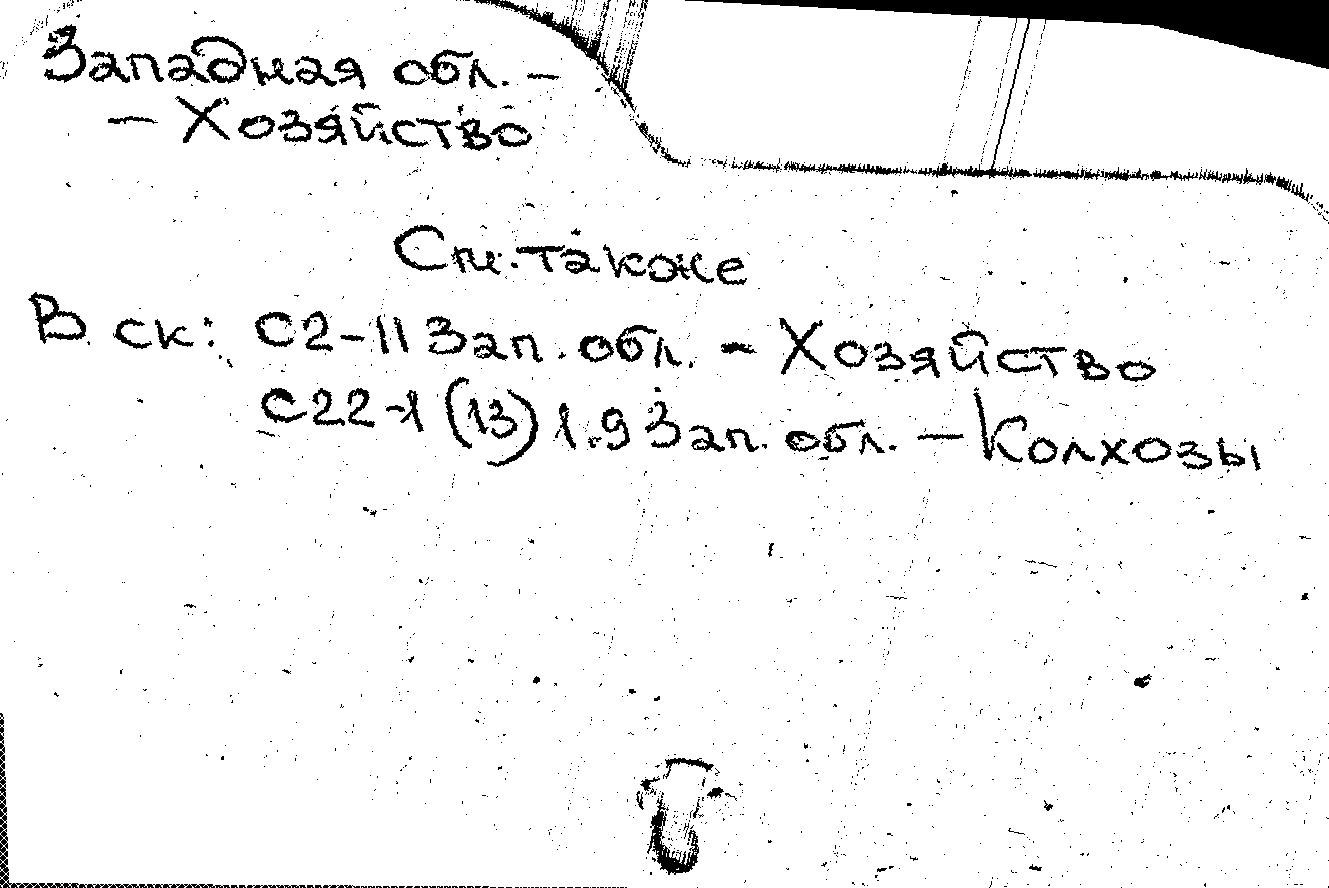 Западная обл. –
– Хозяйство
См. также
В ск: С2-11 Зап. обл. – Хозяйство
С22-1 (13) 1.9 Зап. обл. – Колхозы